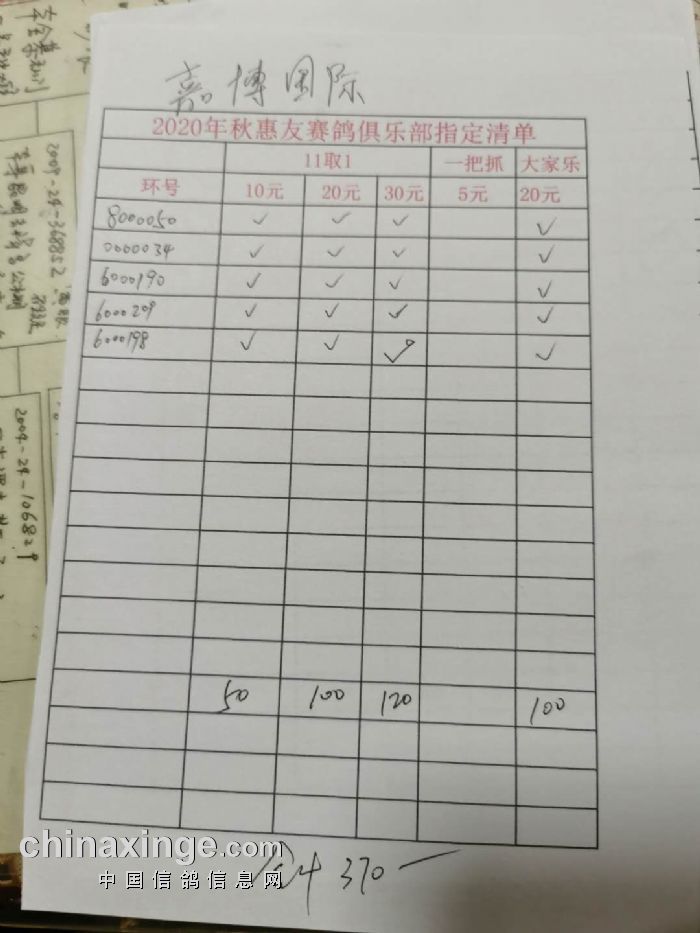 嘉博国际
2020年秋惠友赛鸽俱乐部指定清单
11取1 一把抓 大家乐
环号 10元 20元 30元 5元 20元
8000050 ✓ ✓ ✓ ✓
0000034 ✓ ✓ ✓ ✓
6000190 ✓ ✓ ✓ ✓
6000209 ✓ ✓ ✓ ✓
6000198 ✓ ✓ ✓ ✓
50 100 120 100
370
chinaxinge.com
中国信鸽信息网
2009-24-368852
2004-24-106829